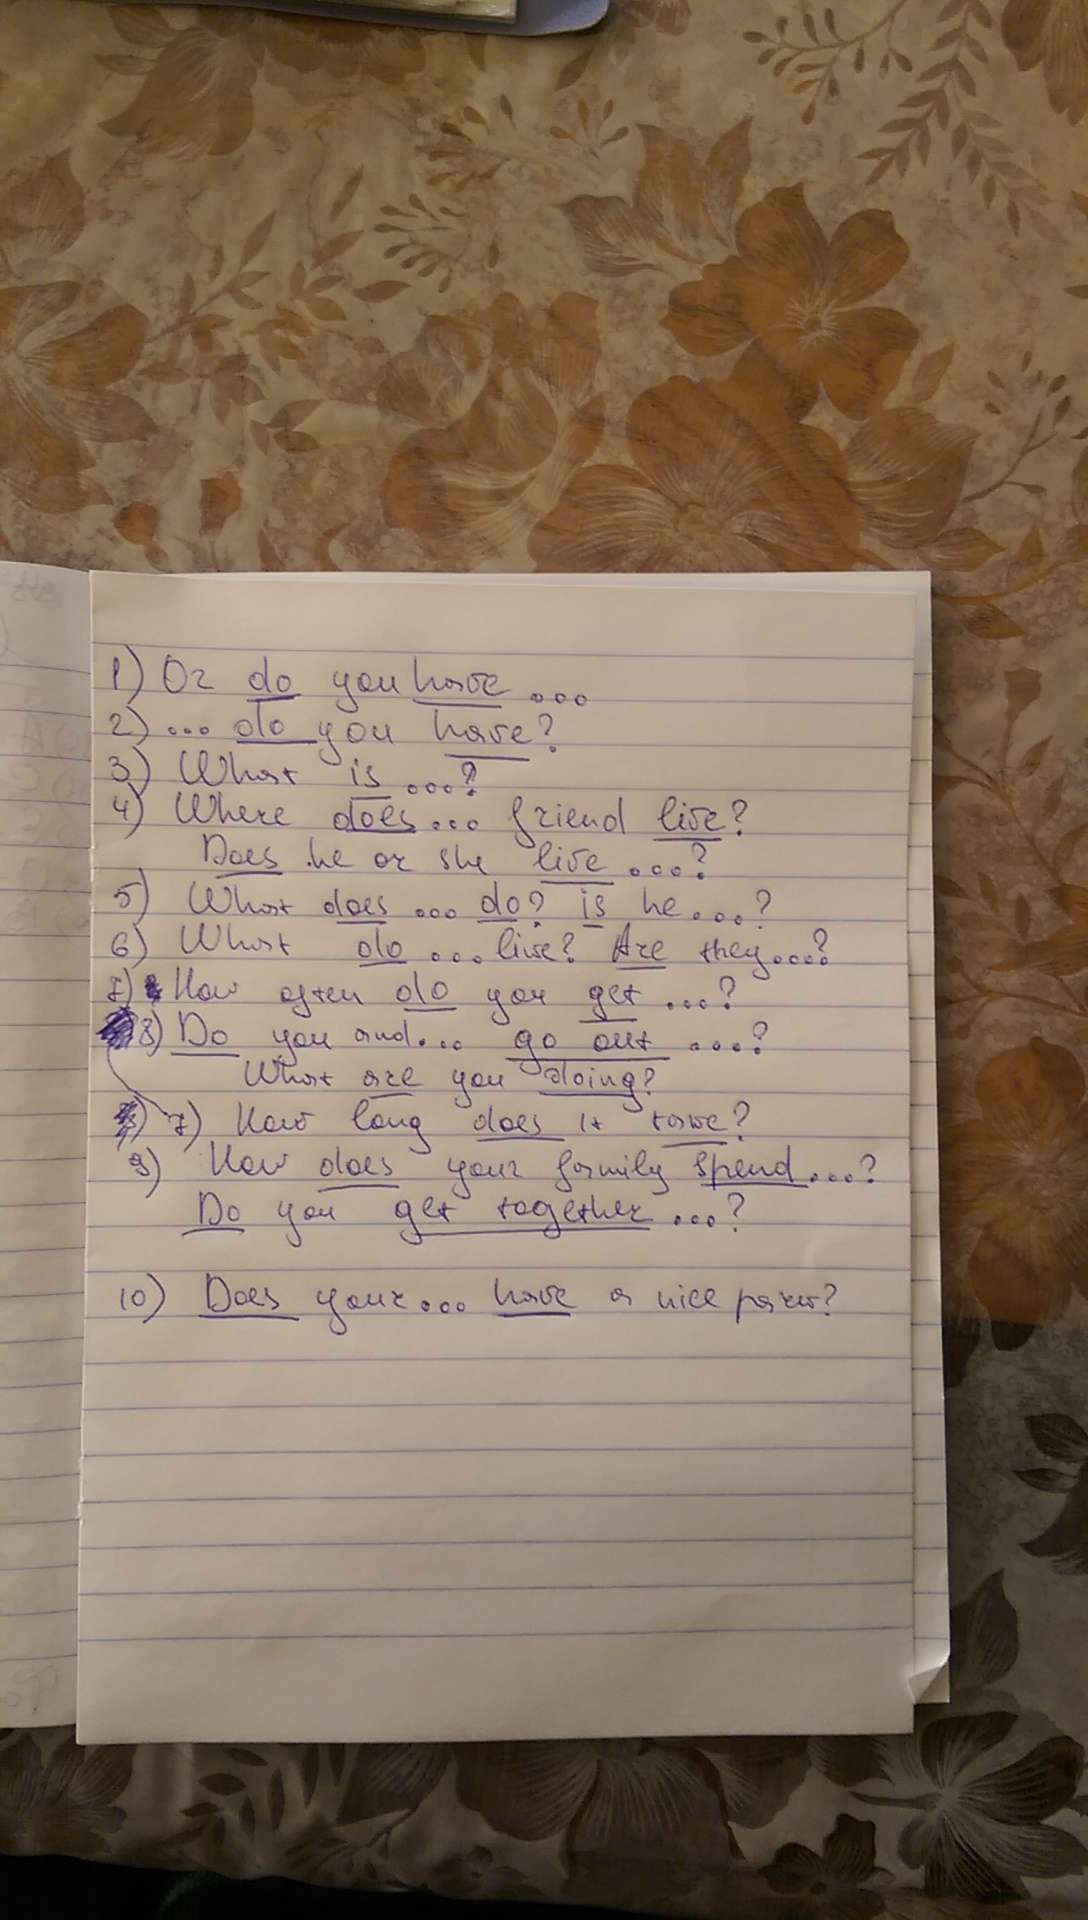 1) Or do you have ...
2) ... do you have?
3) What is ...?
4) Where does ... friend live?
Does he or she live ...?
5) What does ... do? is he ...?
6) What do ... live? Are they ...?
7) How often do you get ...?
8) Do you and ... go out ...?
What are you doing?
7) How long does it take?
9) How does your family spend ...?
Do you get together ...?
10) Does your ... have a nice park?